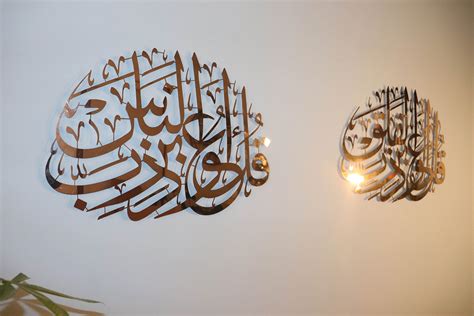 قل أعوذ برب الناس
قل أعوذ برب الفلق